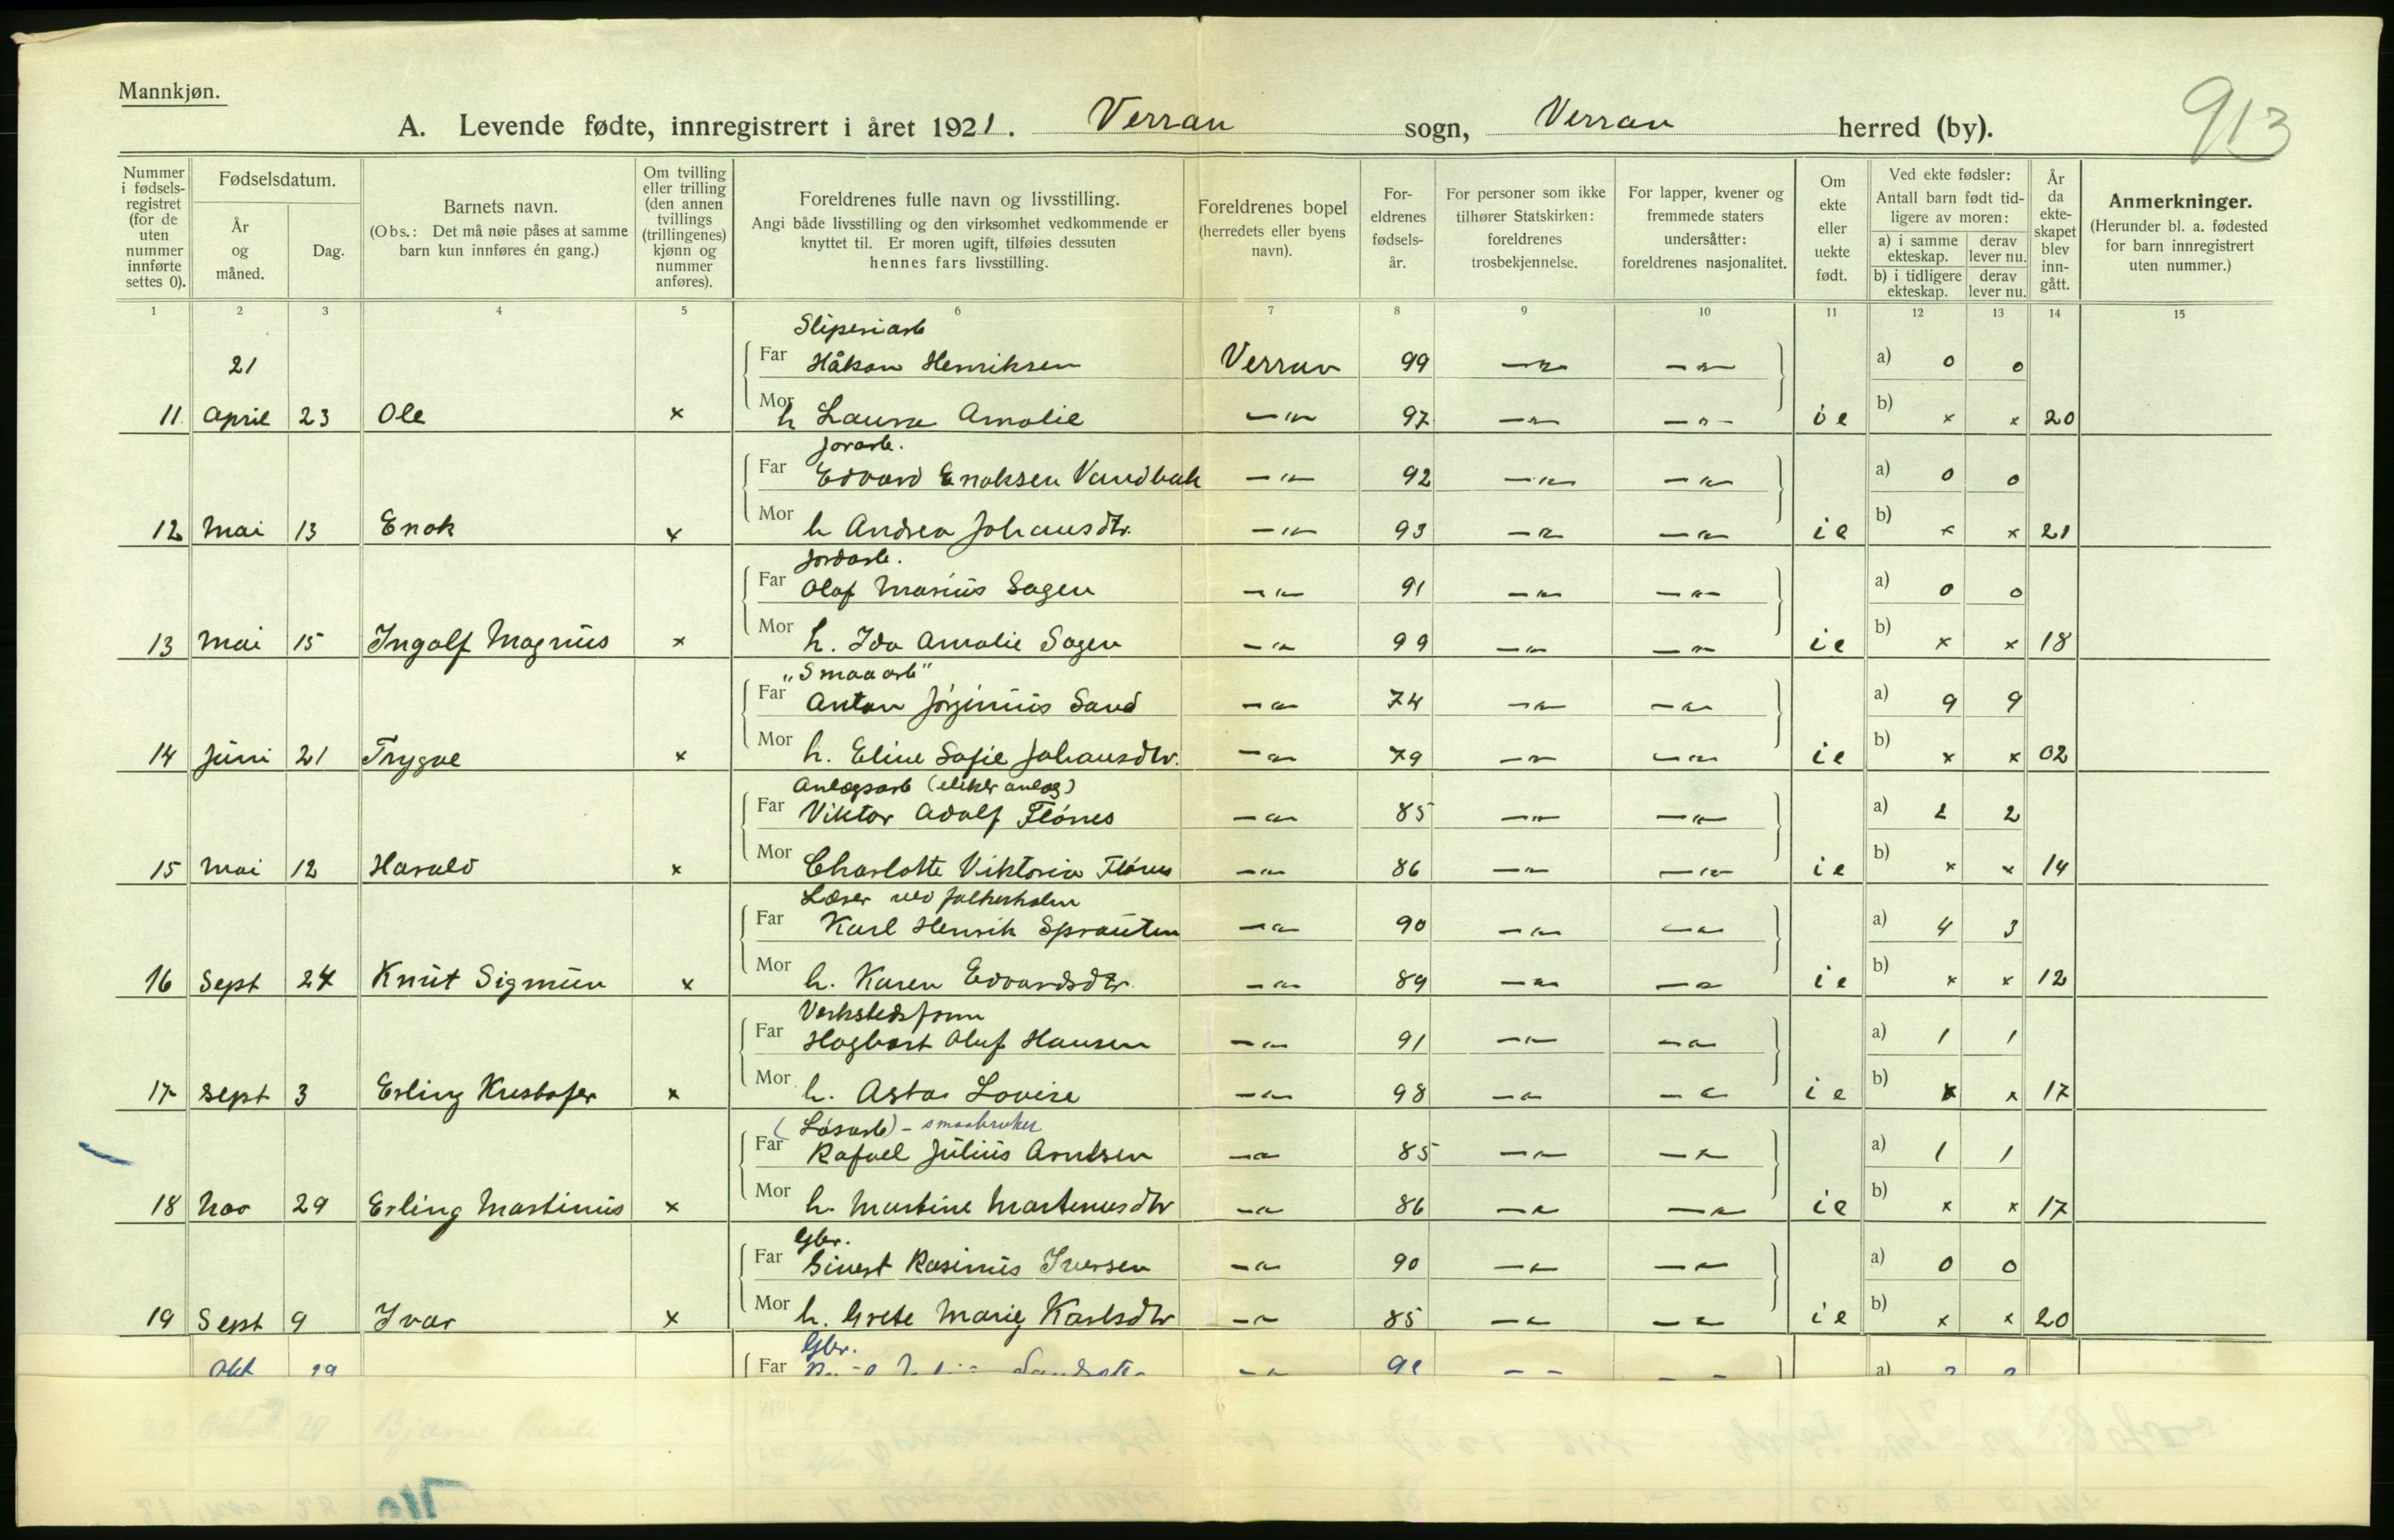 Mannkjøn.
913
A. Levende fødte, innregistrert i året 1921. Verran sogn, Verran herred (by).
Nummer i fødsels-registret (for de uten nummer innførte settes 0).
Fødselsdatum.
År og måned.
Dag.
Barnets navn.
(Obs.: Det må nøie påses at samme barn kun innføres én gang.)
Om tvilling eller trilling (den annen tvillings (trillingenes) kjønn og nummer anføres).
Foreldrenes fulle navn og livsstilling.
Angi både livsstilling og den virksomhet vedkommende er knyttet til. Er moren ugift, tilføies dessuten hennes fars livsstilling.
Foreldrenes bopel (herredets eller byens navn).
For-eldrenes fødsels-år.
For personer som ikke tilhører Statskirken: foreldrenes trosbekjennelse.
For lapper, kvener og fremmede staters undersåtter: foreldrenes nasjonalitet.
Om ekte eller uekte født.
Ved ekte fødsler:
Antall barn født tid-ligere av moren:
a) i samme ekteskap. derav lever nu.
b) i tidligere ekteskap. derav lever nu.
År da ekte-skapet blev inn-gått.
Anmerkninger.
(Herunder bl. a. fødested for barn innregistrert uten nummer.)
1 2 3 4 5 6 7 8 9 10 11 12 13 14 15
Sliperiarb
21 Far Håkon Henriksen Verran 99 — " — — " — a) 0 0
11 April 23 Ole x Mor h Laura Amalie — " — 97 — " — — " — ie b) x x 20
jorarb.
Far Edvard Enoksen Vandbak — " — 92 — " — — " — a) 0 0
12 Mai 13 Enok x Mor h Andrea Johansdtr. — " — 93 — " — — " — ie b) x x 21
jordarb.
Far Olaf Marius Sagen — " — 91 — " — — " — a) 0 0
13 Mai 15 Ingolf Magnus x Mor h. Ida Amalie Sagen — " — 99 — " — — " — ie b) x x 18
„Smaaarb"
Far Anton Jørginius Sand — " — 74 — " — — " — a) 9 9
14 Juni 21 Trygve x Mor h. Eline Sofie Johansdtr. — " — 79 — " — — " — ie b) x x 02
Anlegsarb (elektr anleg)
Far Viktor Adolf Flønes — " — 85 — " — — " — a) 2 2
15 Mai 12 Harald x Mor Charlotte Viktoria Flønes — " — 86 — " — — " — ie b) x x 14
Lærer ved folkeskolen
Far Karl Henrik Sprauten — " — 90 — " — — " — a) 4 3
16 Sept 24 Knut Sigmun x Mor h. Karen Edvardsdtr. — " — 89 — " — — " — ie b) x x 12
Verkstedsform
Far Hagbart Oluf Hansen — " — 91 — " — — " — a) 1 1
17 Sept 3 Erling Kristofer x Mor h. Asta Lovise — " — 98 — " — — " — ie b) x x 17
(Løsarb) - smaabruker
Far Rafael Julius Arntsen — " — 85 — " — — " — a) 1 1
18 Nov 29 Erling Martinius x Mor h. Martine Martinusdtr — " — 86 — " — — " — ie b) x x 17
Gbr.
Far Einert Rasinus Iversen — " — 90 — " — — " — a) 0 0
19 Sept 9 Ivar x Mor h. Grete Marie Karlsdtr — " — 85 — " — — " — ie b) x x 20
Gbr.
Okt 29 Far — " — — — — — a)